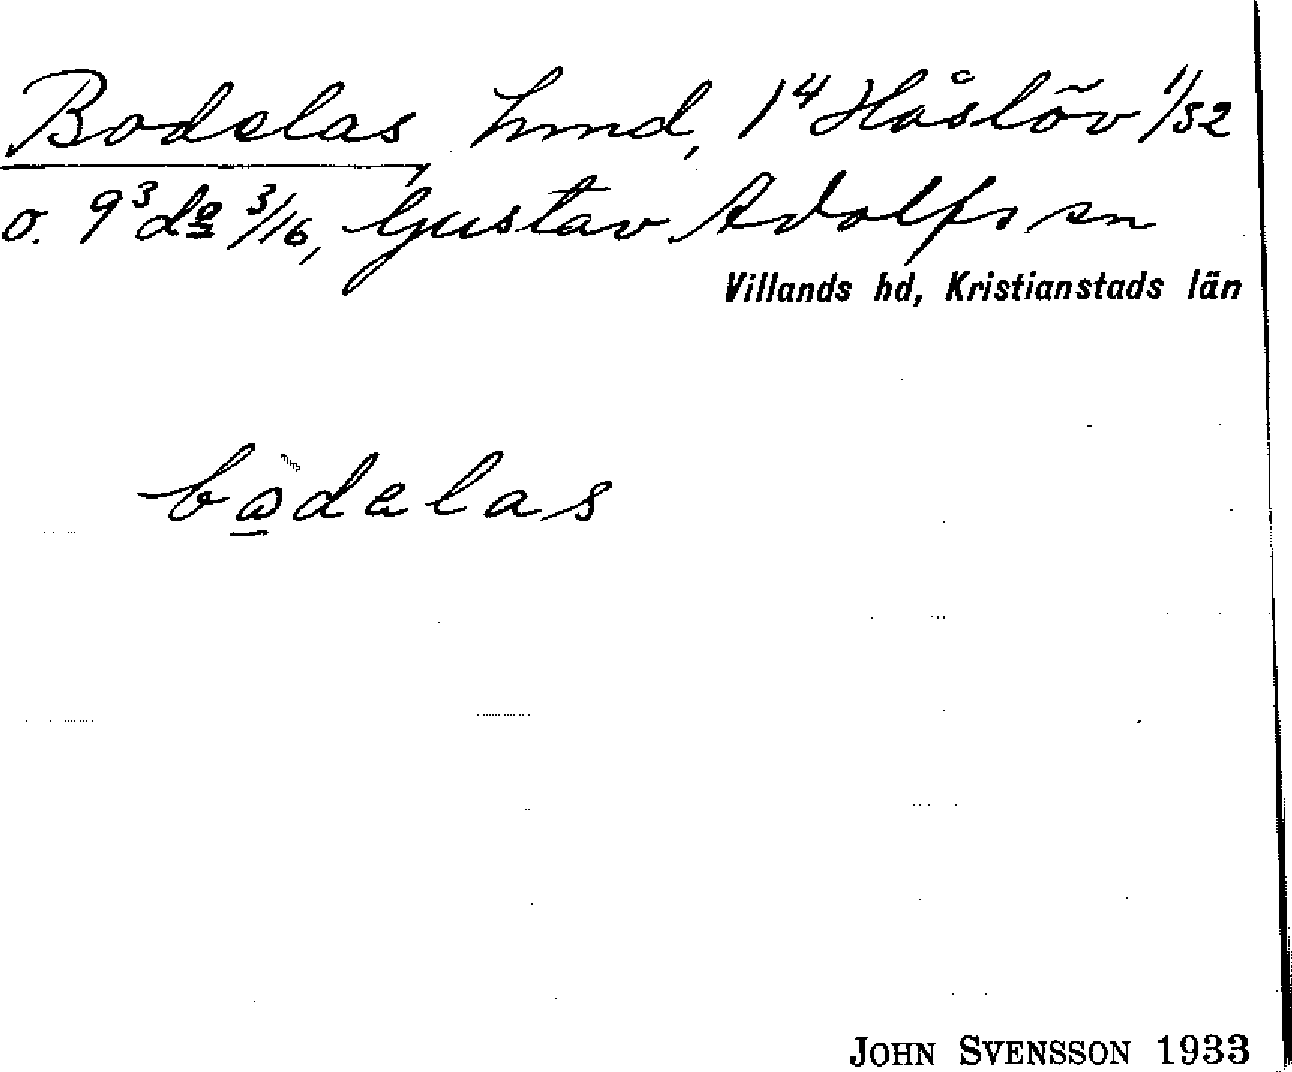 Bodelas hmd, 1⁴ Håslöv 11/32
o. 9³ do 3/16, Gustav Adolfs sn
Villands hd, Kristianstads län
bòdelas
JOHN SVENSSON 1933